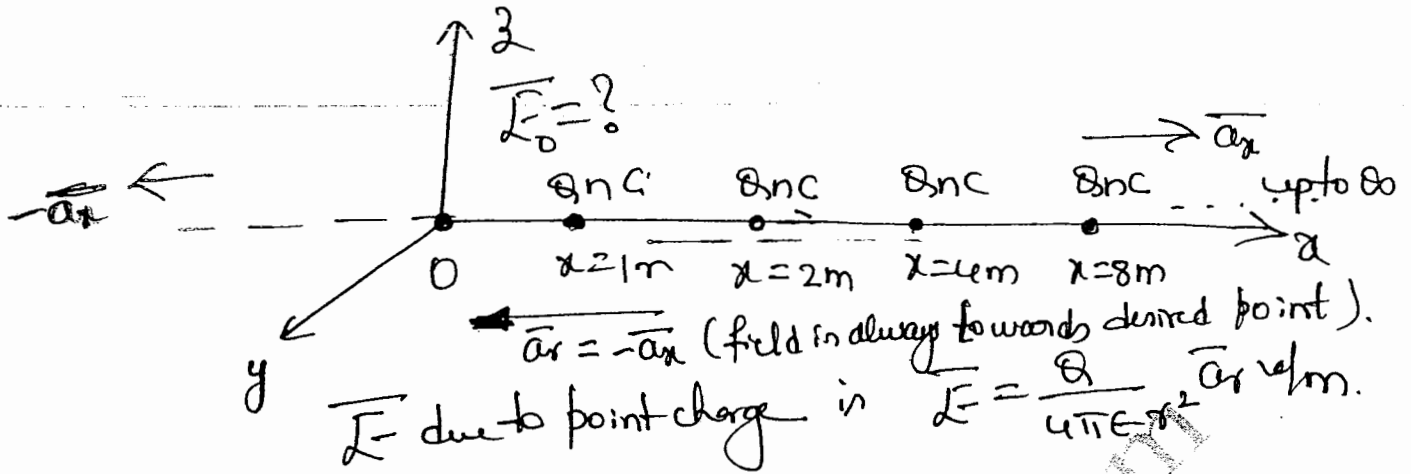 z
E̅₀ = ?
a̅ₓ
-a̅ₓ
QnC QnC QnC QnC .... upto ∞
x
O x=1m x=2m x=4m x=8m
a̅ᵣ = -a̅ₓ (field is always towards desired point).
y
E̅ due to point charge is E̅ = Q / 4π∈r² a̅ᵣ v/m.